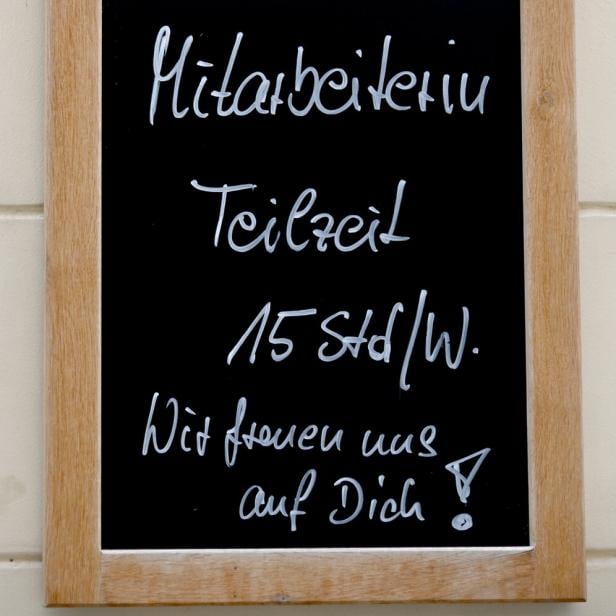 Mitarbeiterin
Teilzeit
15 Std/W.
Wir freuen uns
auf Dich!